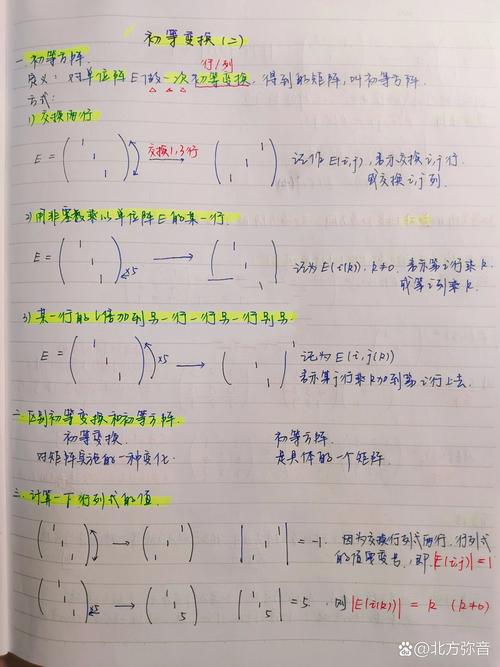 初等变换(二)
一.初等方阵.
行/列
定义: 对单位阵E做一次初等变换, 得到的矩阵,叫初等方阵.
方式:
1) 交换两行
E = ( 1 1 1 ) 交换1,3行 ( 1 1 1 ) 记作 E(i,j), 表示交换i,j行.
或交换i,j列.
2) 用非零数乘以单位阵E的某一行.
E = ( 1 1 1 ) ×5 记为 E(i(k)). k≠0. 表示第i行乘k.
或第i列乘k.
3) 某一行的l倍加到另一行一行另一行别号.
E = ( 1 1 1 ) ×5 记为 E(i,j(k))
表示第j行乘k加到第i行上去.
二.区别初等变换和初等方阵.
初等变换. 初等方阵.
对矩阵实施的一种变化. 是具体的一个矩阵.
三.计算一下行列式的值.
( 1 1 1 ) → ( 1 1 1 ) | 1 1 1 | = -1. 因为交换行列式两行,行列式
的值要变号,即|E(i,j)|=1
( 1 1 1 ) ×5 → ( 1 1 5 ) | 1 1 5 | = 5. 则 |E(i(k))| = k (k≠0)
百家号/北方弥音